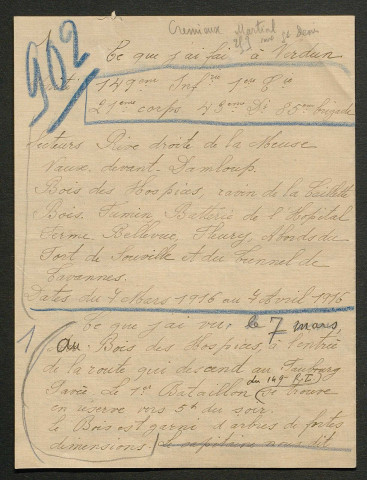 902
Cremieux Martial
Ce que j'ai fait à Verdun
149ème Infrie 1ère Cie
21ème corps 43ème Di 85ème brigade
Secteurs Rive droite de la Meuse
Vaux, devant-Damloup.
Bois des Hospices, ravin de la
Bois Fumin, Batterie de l'Hôpital
Ferme Bellevue, Fleury, Abords du
Fort de Souville et du Tunnel de
Tavannes.
Dates du 7 Mars 1916 au 7 Avril 1916
Ce que j'ai vu, le 7 mars,
1
au Bois des Hospices, à l'entrée
de la route qui descend au Faubourg
Pavé. Le 1er Bataillon du 149e R.I. se trouve
en réserve vers 5h du soir.
Le Bois est garni d'arbres de fortes
dimensions. Le capitaine nous dit